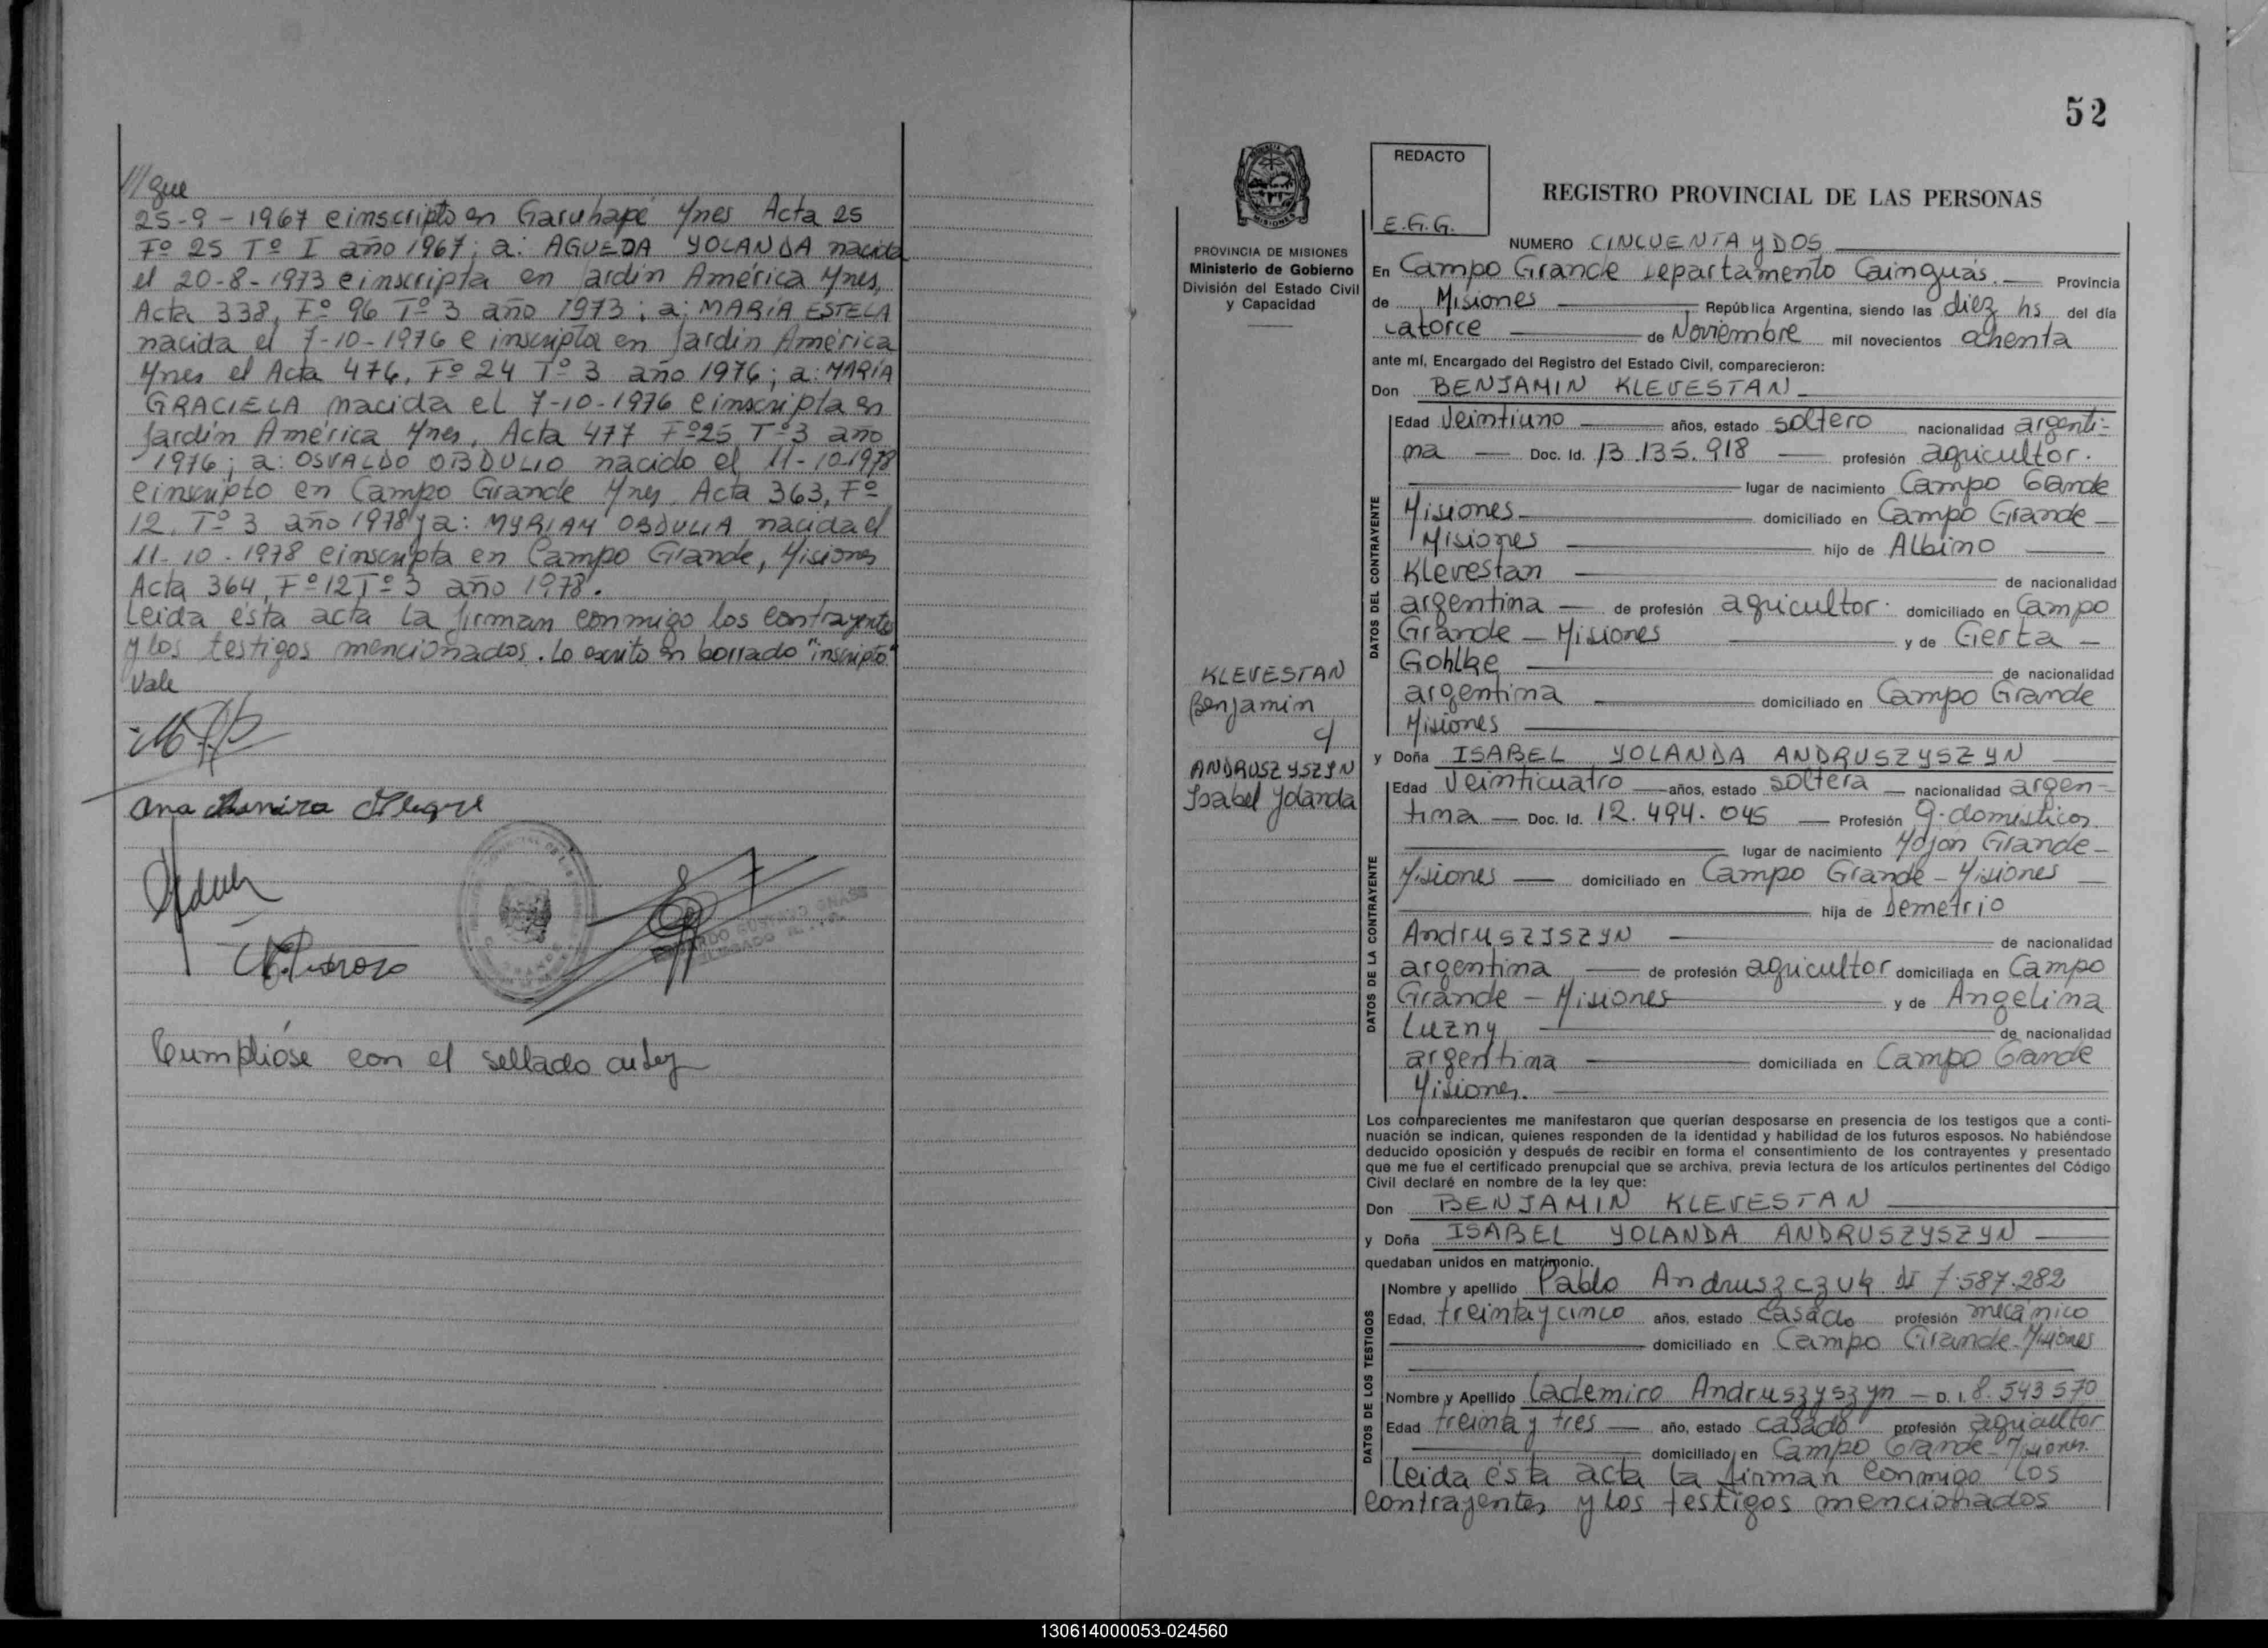 ///que
25-9-1967 e inscripto en Garuhapé Mnes Acta 25
Fº 25 Tº I año 1967; a: AGUEDA YOLANDA nacida
el 20-8-1973 e inscripta en Jardin América Mnes,
Acta 338, Fº 96 Tº 3 año 1973; a: MARÍA ESTELA
nacida el 7-10-1976 e inscripta en Jardin América
Mnes el Acta 476, Fº 24 Tº 3 año 1976; a: MARÍA
GRACIELA nacida el 7-10-1976 e inscripta en
Jardin América Mnes, Acta 477 Fº 25 Tº 3 año
1976; a: OSVALDO OBDULIO nacido el 11-10-1978
e inscripto en Campo Grande Mnes, Acta 363, Fº
12, Tº 3 año 1978 y a: MYRIAM OBDULIA nacida el
11-10-1978 e inscripta en Campo Grande, Misiones
Acta 364, Fº 12 Tº 3 año 1978.
Leida ésta acta la firman conmigo los contrayentes
y los testigos mencionados. Lo escrito en borrado "inscripto"
Vale
Ana Ramira
Cumplióse con el sellado de ley
52
REDACTO
E.G.G.
REGISTRO PROVINCIAL DE LAS PERSONAS
PROVINCIA DE MISIONES
Ministerio de Gobierno
División del Estado Civil
y Capacidad
KLEVESTAN
Benjamin
c/
ANDRUSZYSZYN
Isabel Yolanda
NUMERO CINCUENTA Y DOS
En Campo Grande Departamento Cainguás. Provincia
de Misiones República Argentina, siendo las diez hs del día
catorce de Noviembre mil novecientos ochenta
ante mí, Encargado del Registro del Estado Civil, comparecieron:
Don BENJAMIN KLEVESTAN
DATOS DEL CONTRAYENTE
Edad Veintiuno años, estado soltero nacionalidad argenti-
na Doc. Id. 13.135.918 profesión agricultor.
lugar de nacimiento Campo Grande
Misiones domiciliado en Campo Grande
Misiones hijo de Albino
Klevestan de nacionalidad
argentina de profesión agricultor. domiciliado en Campo
Grande - Misiones y de Gerta
Gohlke de nacionalidad
argentina domiciliado en Campo Grande
Misiones
y Doña ISABEL YOLANDA ANDRUSZYSZYN
DATOS DE LA CONTRAYENTE
Edad Veinticuatro años, estado soltera nacionalidad argen-
tina Doc. Id. 12.494.045 Profesión q. domésticos
lugar de nacimiento Mojón Grande
Misiones domiciliado en Campo Grande - Misiones
hija de Demetrio
Andruszyszyn de nacionalidad
argentina de profesión agricultor domiciliada en Campo
Grande - Misiones y de Angelina
Luzny de nacionalidad
argentina domiciliada en Campo Grande
Misiones.
Los comparecientes me manifestaron que querían desposarse en presencia de los testigos que a conti-
nuación se indican, quienes responden de la identidad y habilidad de los futuros esposos. No habiéndose
deducido oposición y después de recibir en forma el consentimiento de los contrayentes y presentado
que me fue el certificado prenupcial que se archiva, previa lectura de los artículos pertinentes del Código
Civil declaré en nombre de la ley que:
Don BENJAMIN KLEVESTAN
y Doña ISABEL YOLANDA ANDRUSZYSZYN
quedaban unidos en matrimonio.
DATOS DE LOS TESTIGOS
Nombre y apellido Pablo Andruszczuk DI 7.587.282
Edad, treinta y cinco años, estado casado profesión mecánico
domiciliado en Campo Grande - Misiones
Nombre y Apellido Clademiro Andruszyszyn - D. I. 8.543570
Edad treina y tres año, estado casado profesión agricultor
domiciliado en Campo Grande - Misiones.
Leida ésta acta la firman conmigo los
contrayentes y los testigos mencionados
130614000053-024560